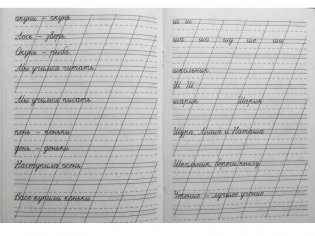 окуни – окунь
Лось – зверь.
Окунь – рыба.
Мы учимся читать.
Мы учимся писать.
пень – пеньки
день – деньки
Наступила осень.
Вася купили коньки.
ш ш
ша шо шу ше ши
школьник
Ш Ш
шарик Шарик
Шура, Миша и Наташа
Школьник, береги книгу.
Чтение – лучшее учение.